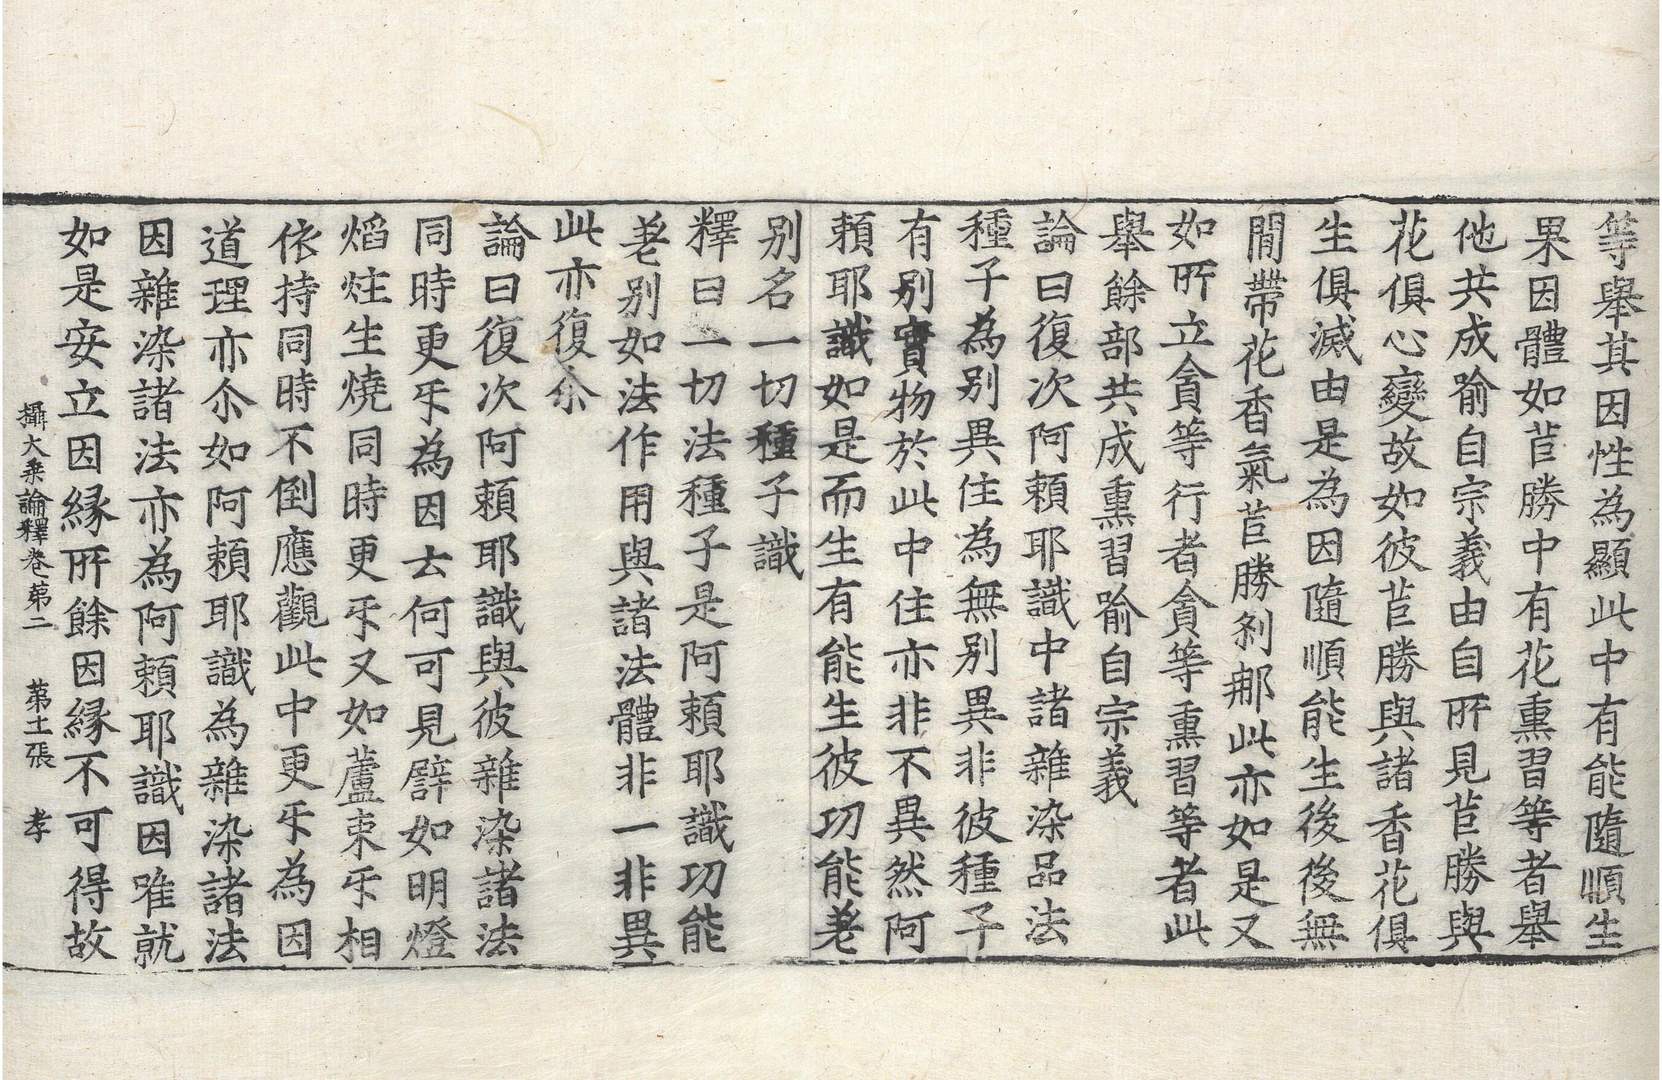 等舉其因性為顯此中有能隨順生
果因體如苣勝中有花熏習等者舉
他共成喻自宗義由自所見苣勝與
花俱心變故如彼苣勝與諸香花俱
生俱滅由是為因隨順能生後後無
間帶花香氣苣勝剎那此亦如是又
如所立貪等行者貪等熏習等者此
舉餘部共成熏習喻自宗義
論曰復次阿賴耶識中諸雜染品法
種子為別異住為無別異非彼種子
有別實物於此中住亦非不異然阿
賴耶識如是而生有能生彼功能差
別名一切種子識
釋曰一切法種子是阿賴耶識功能
差別如法作用與諸法體非一非異
此亦復尒
論曰復次阿賴耶識與彼雜染諸法
同時更㸦為因云何可見譬如明燈
焰炷生燒同時更㸦又如蘆束㸦相
依持同時不倒應觀此中更㸦為因
道理亦尒如阿賴耶識為雜染諸法
因雜染諸法亦為阿賴耶識因唯就
如是安立因緣所餘因緣不可得故
攝大乘論釋卷第二 第十一張 孝